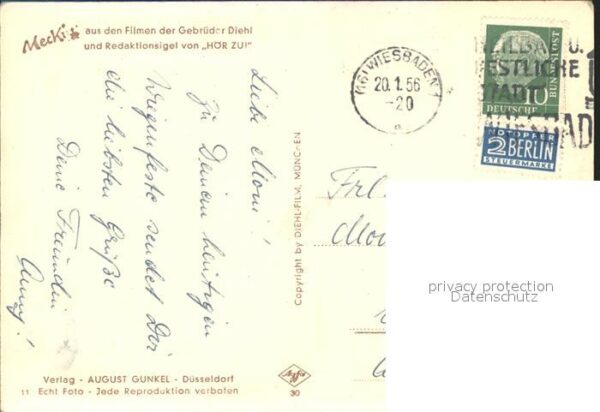 Mecki aus den Filmen der Gebrüder Diehl
und Redaktionsigel von „HÖR ZU!"
Liebe Moni!
Zu Deinem heutigen
Wiegenfeste sendet Dir
die liebsten Grüße
Deine Freundin
Copyright by DIEHL-FILM, MÜNCHEN
(16) WIESBADEN 1
20.1.56
-20
a
WELTBAD U.
FESTLICHE
STADT
WIESBAD
10
DEUTSCHE
BUNDESPOST
NOTOPFER
2 BERLIN
STEUERMARKE
Frl.
privacy protection
Datenschutz
Verlag - AUGUST GUNKEL - Düsseldorf
11 Echt Foto - Jede Reproduktion verboten
Agfa
30